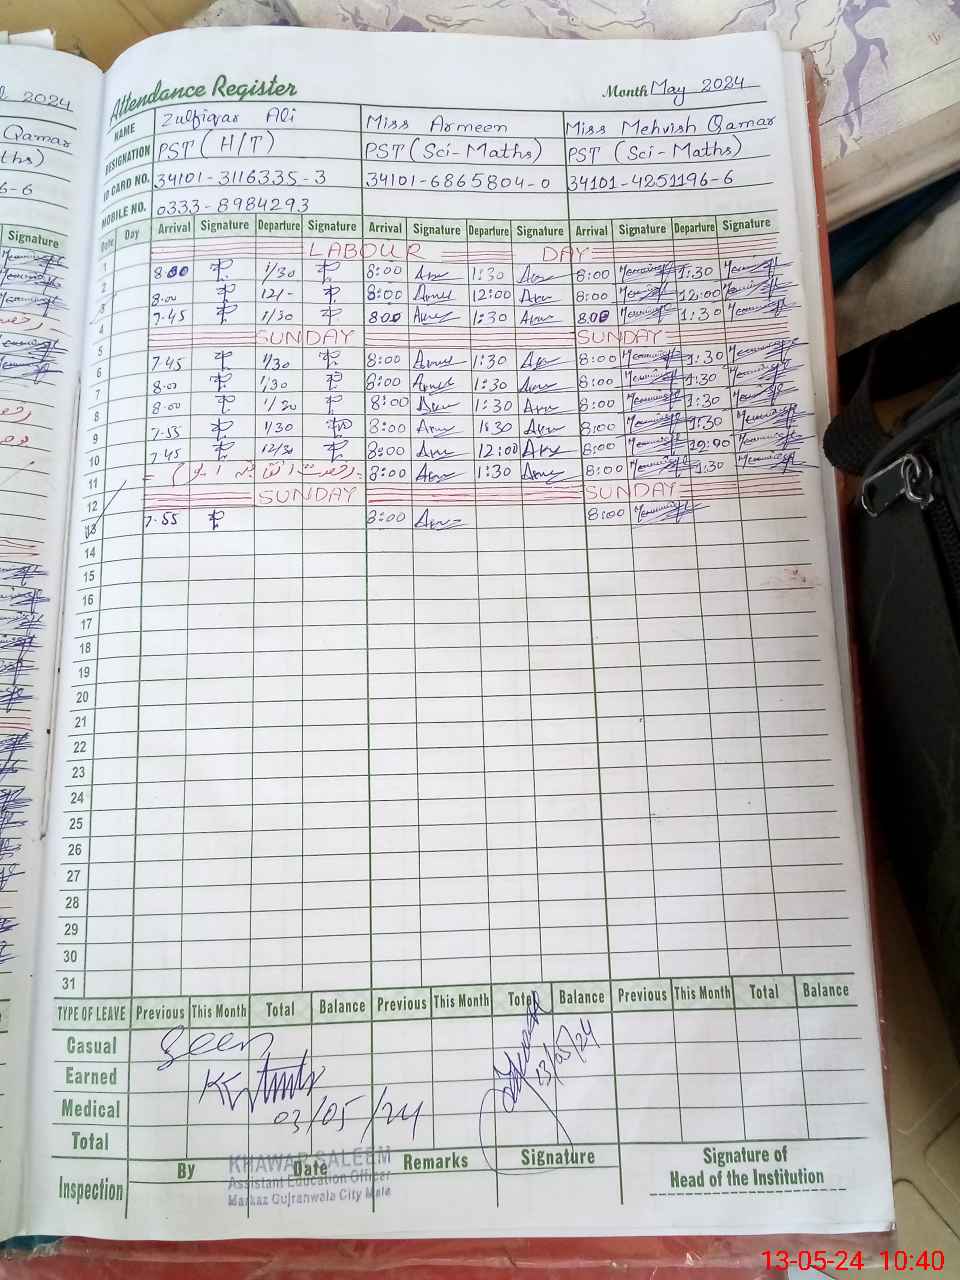 2024
Qamar
Signature
Attendance Register
Month May 2024
NAME Zulfiqar Ali Miss Armeen Miss Mehvish Qamar
DESIGNATION PST (H/T) PST (Sci-Maths) PST (Sci-Maths)
ID CARD NO. 34101-3116335-3 34101-6865804-0 34101-4251196-6
MOBILE NO. 0333-8984293
Date Day Arrival Signature Departure Signature Arrival Signature Departure Signature Arrival Signature Departure Signature
1 LABOUR DAY
2 8.00 1/30 8:00 1:30 8:00 1:30
3 8.00 12/- 8:00 12:00 8:00 12:00
4 7.45 1/30 8:00 1:30 8:00 1:30
5 SUNDAY SUNDAY
6 7.45 1/30 8:00 1:30 8:00 1:30
7 8.00 1/30 8:00 1:30 8:00 1:30
8 8.00 1/30 8:00 1:30 8:00 1:30
9 7.55 1/30 8:00 1:30 8:00 1:30
10 7.45 12/30 8:00 12:00 8:00 12:00
11 رخصت اتفاقیہ 8:00 1:30 8:00 1:30
12 SUNDAY SUNDAY
13 7.55 8:00 8:00
14
15
16
17
18
19
20
21
22
23
24
25
26
27
28
29
30
31
TYPE OF LEAVE Previous This Month Total Balance Previous This Month Total Balance Previous This Month Total Balance
Casual
Earned
Medical
Total
Seen
03/05/24
13/05/24
Inspection By Date Remarks Signature
Signature of
Head of the Institution
KHAWAR SALEEM
Assistant Education Officer
Markaz Gujranwala City Male
13-05-24 10:40